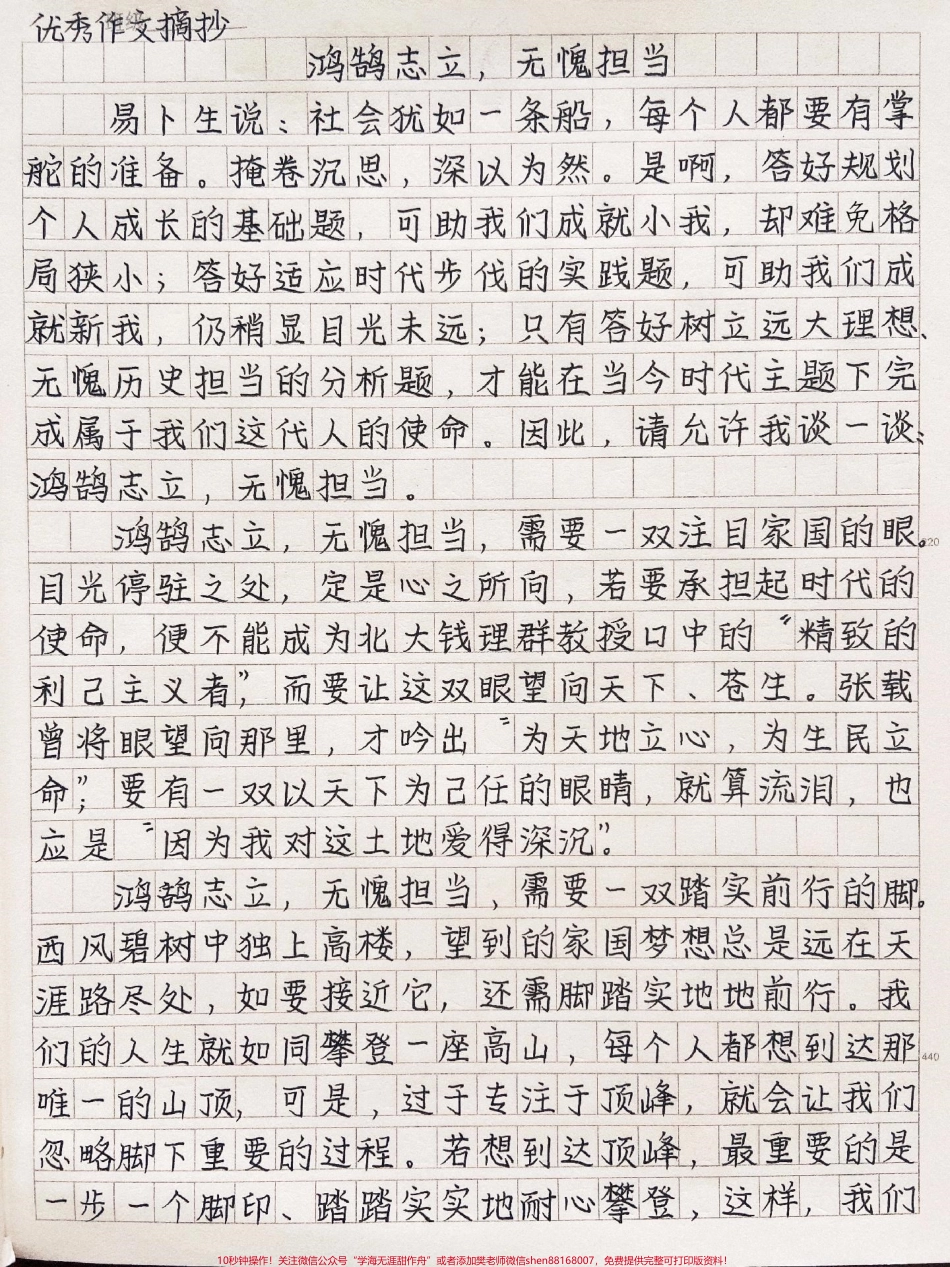 优秀作文摘抄
鸿鹄志立，无愧担当
易卜生说：社会犹如一条船，每个人都要有掌
舵的准备。掩卷沉思，深以为然。是啊，答好规划
个人成长的基础题，可助我们成就小我，却难免格
局狭小；答好适应时代步伐的实践题，可助我们成
就新我，仍稍显目光未远；只有答好树立远大理想、
无愧历史担当的分析题，才能在当今时代主题下完
成属于我们这代人的使命。因此，请允许我谈一谈：
鸿鹄志立，无愧担当。
鸿鹄志立，无愧担当，需要一双注目家国的眼。
220
目光停驻之处，定是心之所向，若要承担起时代的
使命，便不能成为北大钱理群教授口中的“精致的
利己主义者”，而要让这双眼望向天下、苍生。张载
曾将眼望向那里，才吟出“为天地立心，为生民立
命”；要有一双以天下为己任的眼睛，就算流泪，也
应是“因为我对这土地爱得深沉”。
鸿鹄志立，无愧担当，需要一双踏实前行的脚。
西风碧树中独上高楼，望到的家国梦想总是远在天
涯路尽处，如要接近它，还需脚踏实地地前行。我
们的人生就如同攀登一座高山，每个人都想到达那
440
唯一的山顶，可是，过于专注于顶峰，就会让我们
忽略脚下重要的过程。若想到达顶峰，最重要的是
一步一个脚印、踏踏实实地耐心攀登，这样，我们
10秒钟操作！关注微信公众号“学海无涯甜作舟”或者添加樊老师微信shen88168007，免费提供完整可打印版资料！